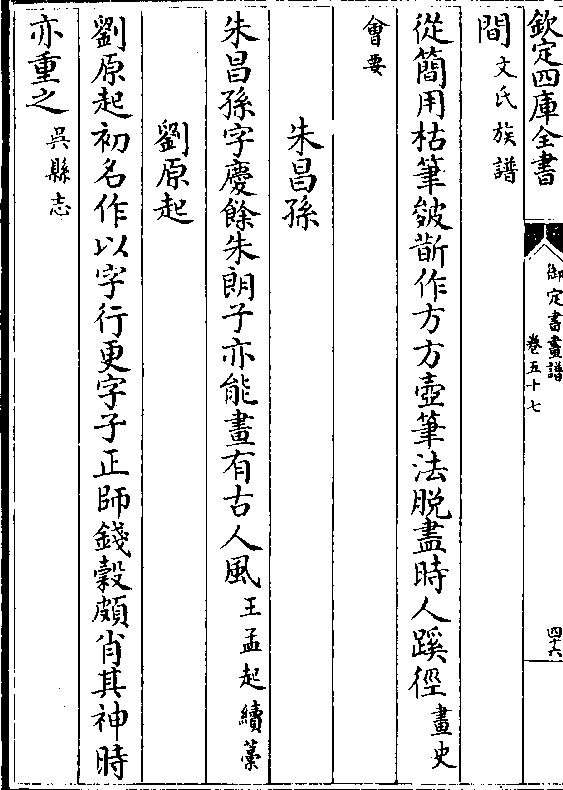 欽定四庫全書
御定書畫譜
卷五十七
四十六
間文氏族譜
從簡用枯筆皴斮作方方壺筆法脱盡時人蹊徑畫史
會要
朱昌孫
朱昌孫字慶餘朱朗子亦能畫有古人風王孟起續藁
劉原起
劉原起初名作以字行更字子正師錢穀頗肖其神時
亦重之吳縣志